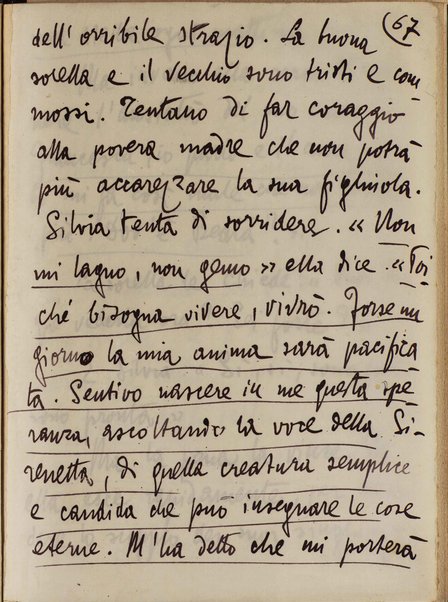 (67
dell'orribile strazio. La buona
sorella e il vecchio sono tristi e com
mossi. Tentano di far coraggio
alla povera madre che non potrà
più accarezzare la sua figliuola.
Silvia tenta di sorridere. « Non
mi lagno, non gemo » ella dice. « Poi
ché bisogna vivere, vivrò. Forse un
giorno la mia anima sarà pacifica
ta. Sentivo nascere in me questa spe
ranza, ascoltando la voce della Si-
renetta, di quella creatura semplice
e candida che può insegnare le cose
eterne. M'ha detto che mi porterà